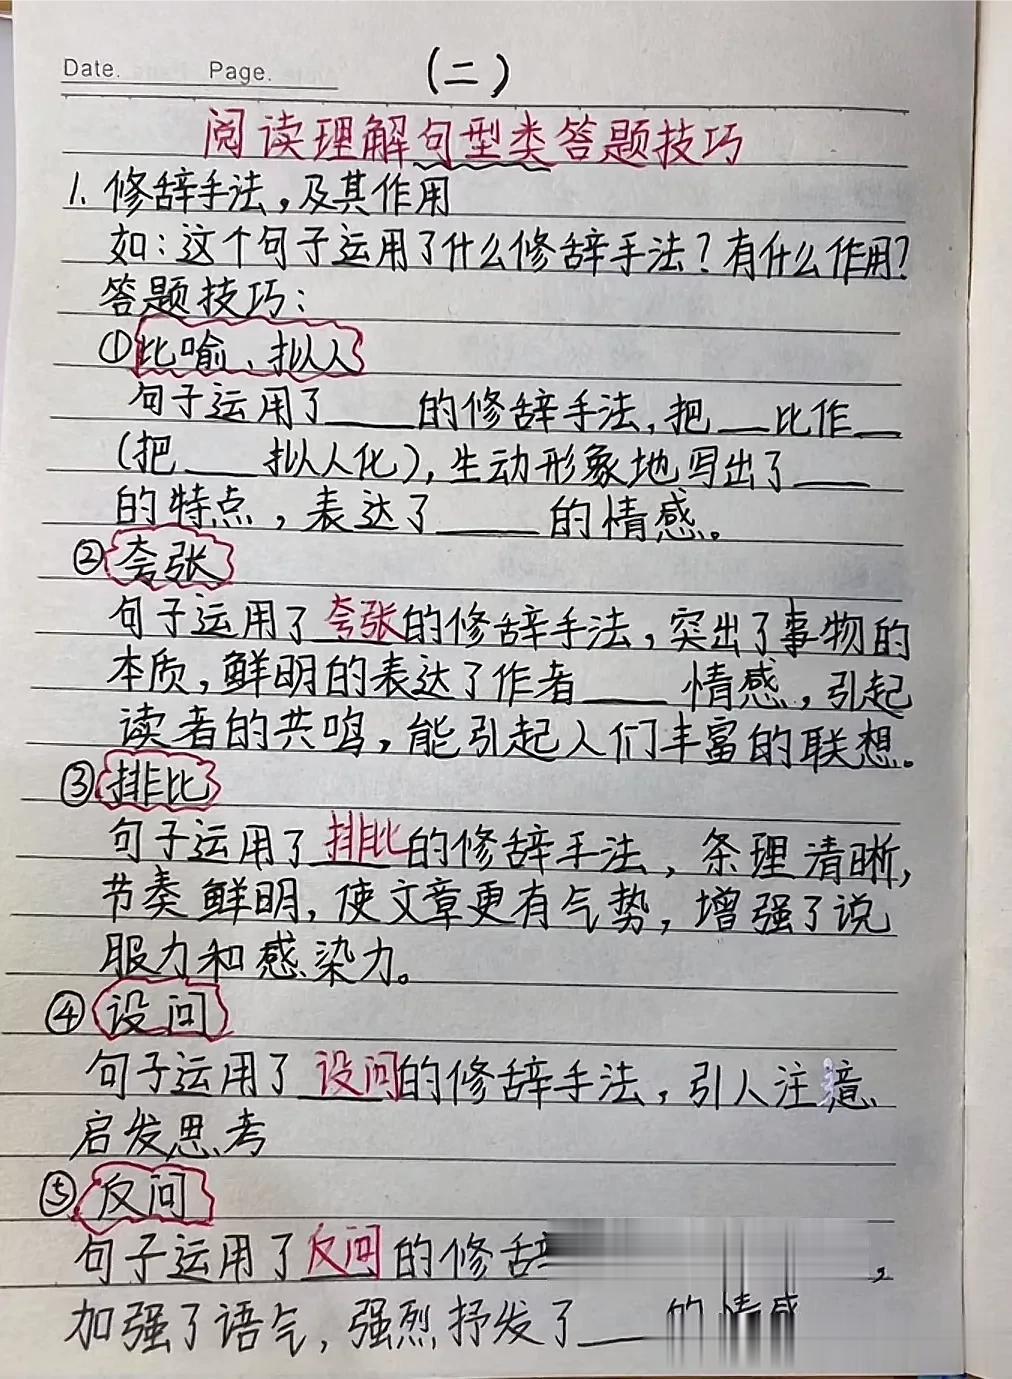 Date. Page. (二)
阅读理解句型类答题技巧
1. 修辞手法,及其作用
如:这个句子运用了什么修辞手法?有什么作用?
答题技巧:
①比喻、拟人
句子运用了____的修辞手法,把__比作__
(把___拟人化),生动形象地写出了___
的特点,表达了____的情感。
②夸张
句子运用了夸张的修辞手法,突出了事物的
本质,鲜明的表达了作者____情感,引起
读者的共鸣,能引起人们丰富的联想。
③排比
句子运用了排比的修辞手法,条理清晰,
节奏鲜明,使文章更有气势,增强了说
服力和感染力。
④设问
句子运用了设问的修辞手法,引人注意、
启发思考
⑤反问
句子运用了反问的修辞,
加强了语气,强烈抒发了___的情感